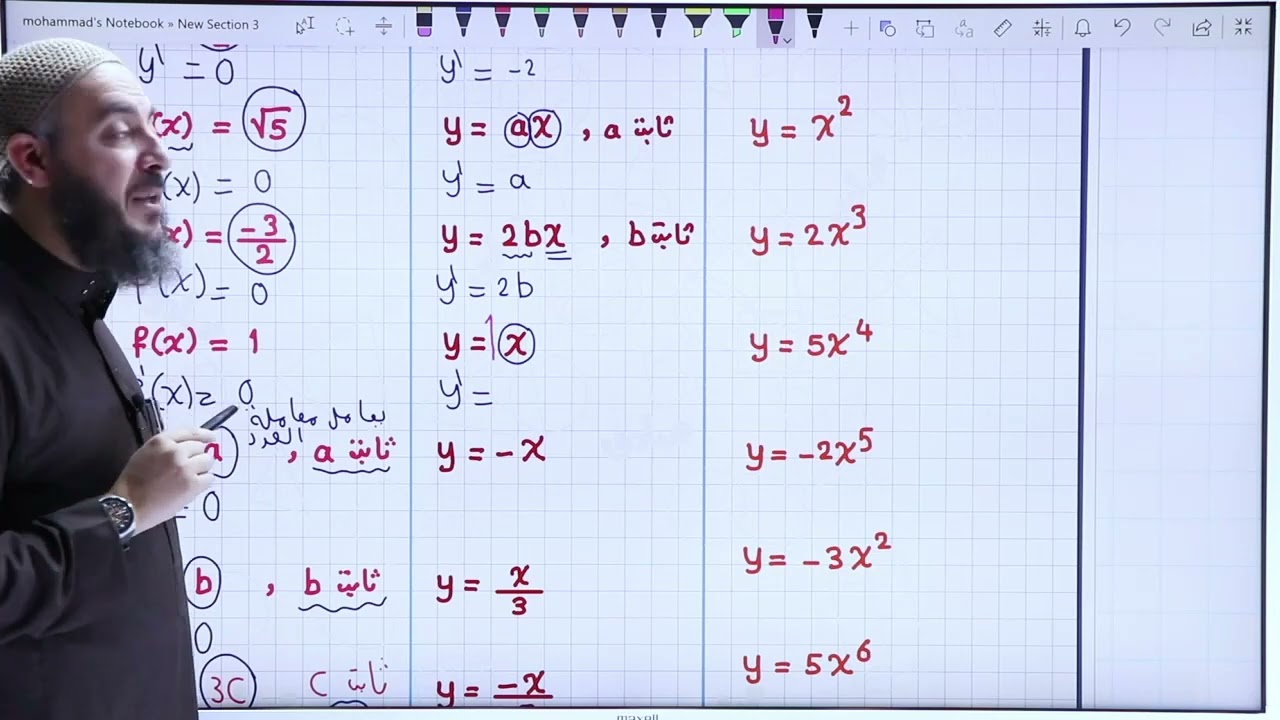 mohammad's Notebook » New Section 3
y' = 0
(x) = √5
(x) = 0
x) = -3/2
(x) = 0
f(x) = 1
(x) = 0
يعامل معاملة
العدد
a , a ثابت
= 0
b , b ثابت
0
3C C ثابت
y' = -2
y = ax , a ثابت
y' = a
y = 2bx , b ثابت
y' = 2b
y = 1x
y' =
y = -x
y = x/3
y = -x
y = x²
y = 2x³
y = 5x⁴
y = -2x⁵
y = -3x²
y = 5x⁶
maxell